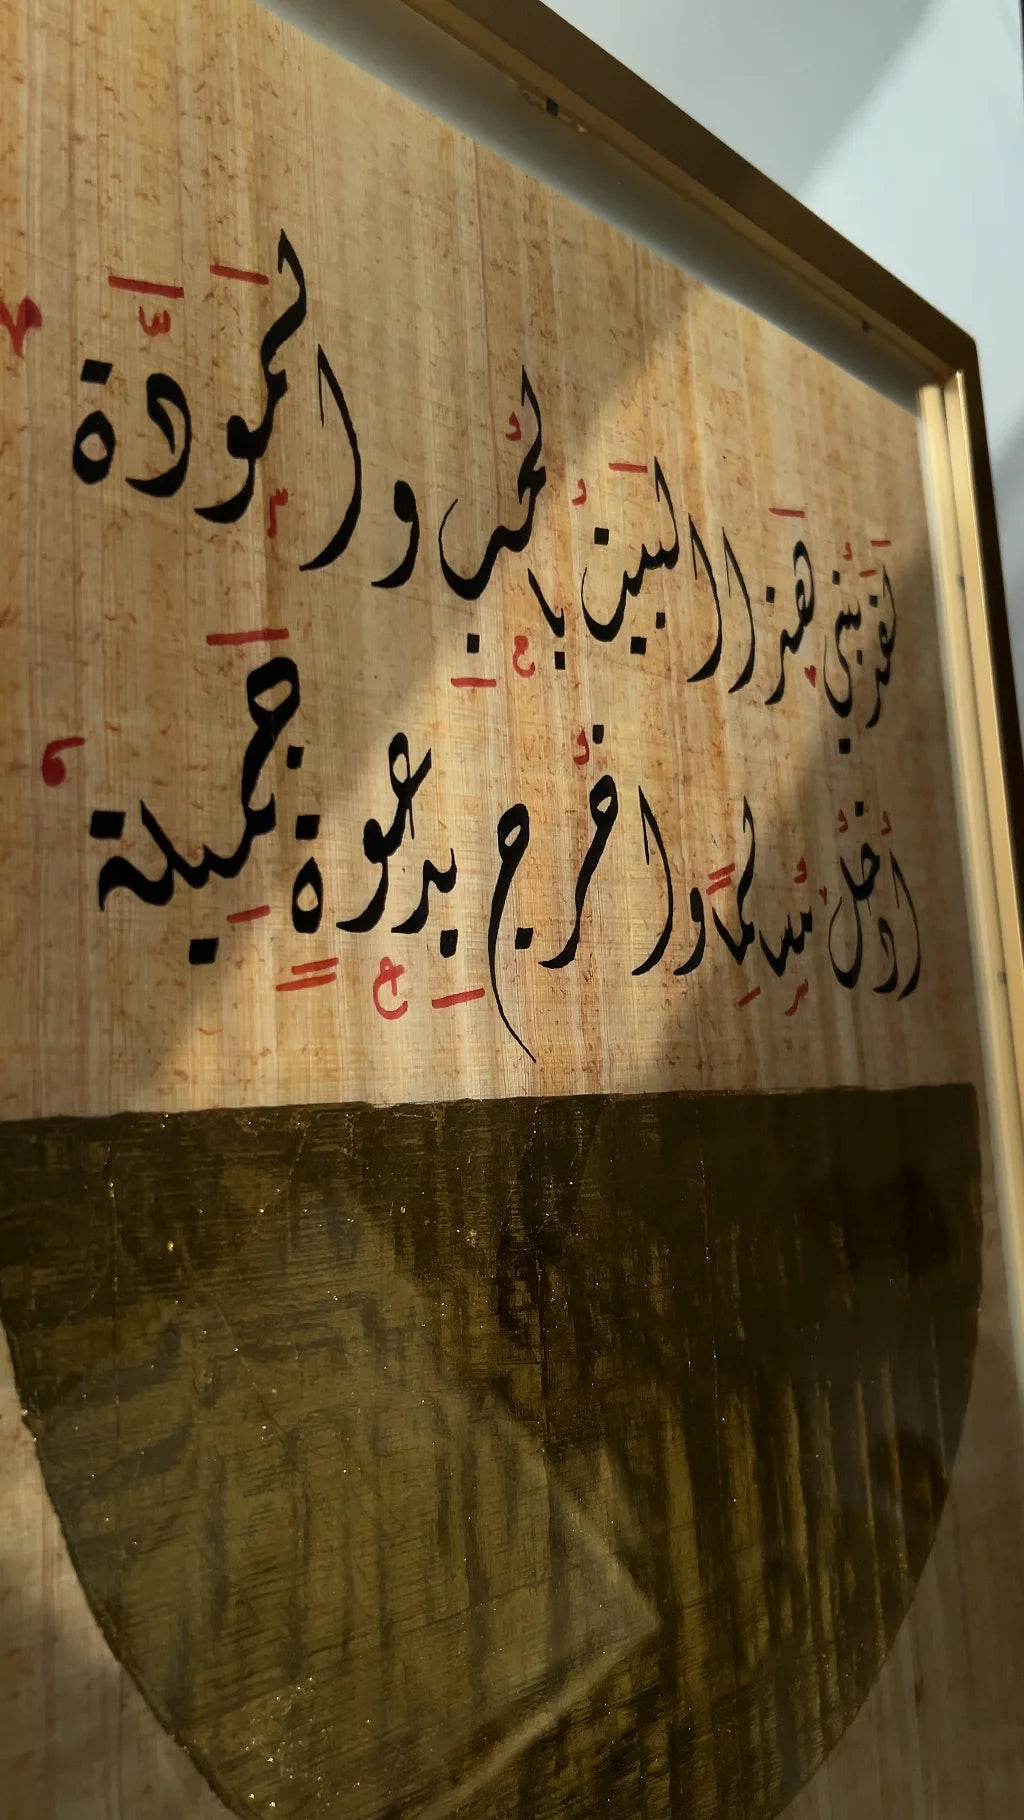 لقد بُني هذا البيت بالحب والمودّة
ادخل مسلِّمًا واخرج بدعوةٍ جميلة